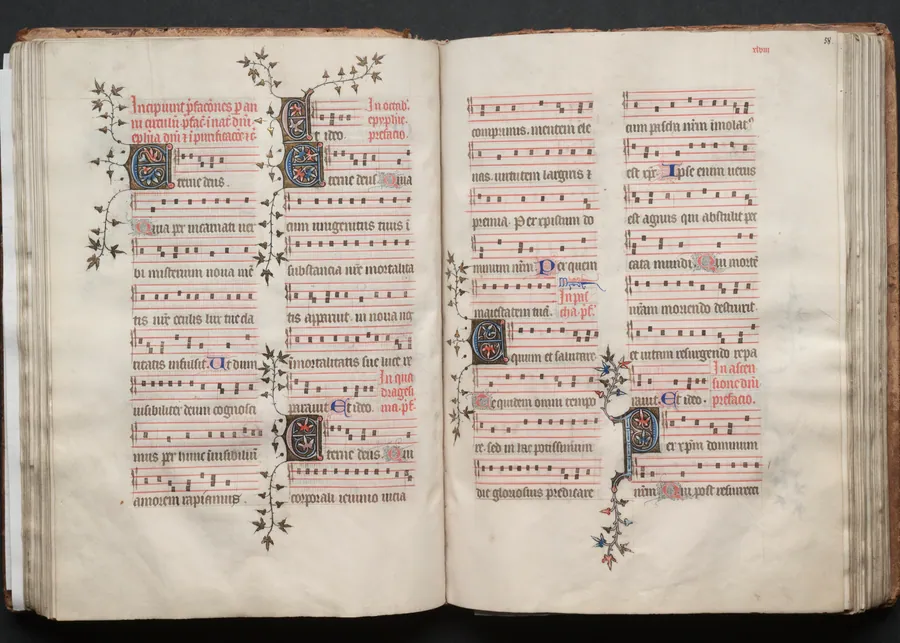 Incipiunt p̄facōnes p an
ni circulū. p̄fac̄ i nat̄ dn̄i
ep̄hia dn̄i ⁊ i purificacōe
Eterne deus.
Quia per incarnati ver
bi misterium noua mē
tis nr̄e oculis lux tue cla
ritatis infulsit. Ut dum
uisibiliter deum cognosci
mus per hunc inuisibiliū
amorem rapiamur.
In octab̄
epyphīe.
prefacio.
Et ideo.
Eterne deus. Quia
cum unigenitus tuus ī
substancia nr̄e mortalita
tis apparuit. in noua nos
īmortalitatis sue luce re
In qua
dragesi
ma. pf̄.
parauit. Et ideo.
Eterne deus. Qui
corporali ieiunio uicia
xlviii
58
comprimis. mentem ele
uas. uirtutem largiris ⁊
premia. Per xpistum do
minum nr̄m. Per quem
In pas
cha. pf̄.
maiestatem tuā.
Equum et salutare
Te quidem omni tempo
re. sed in hac potissimum
die gloriosius predicare
cum pascha nr̄m imolatꝰ
est xp̄c. Ipse enim uerus
est agnus qui abstulit pec
cata mundi. Qui mortē
nr̄am moriendo destruxit.
et uitam resurgendo repa
In ascen
sione dn̄i
prefacio.
rauit. Et ideo.
Per xp̄m dominum
nr̄m. Qui post resurrecci